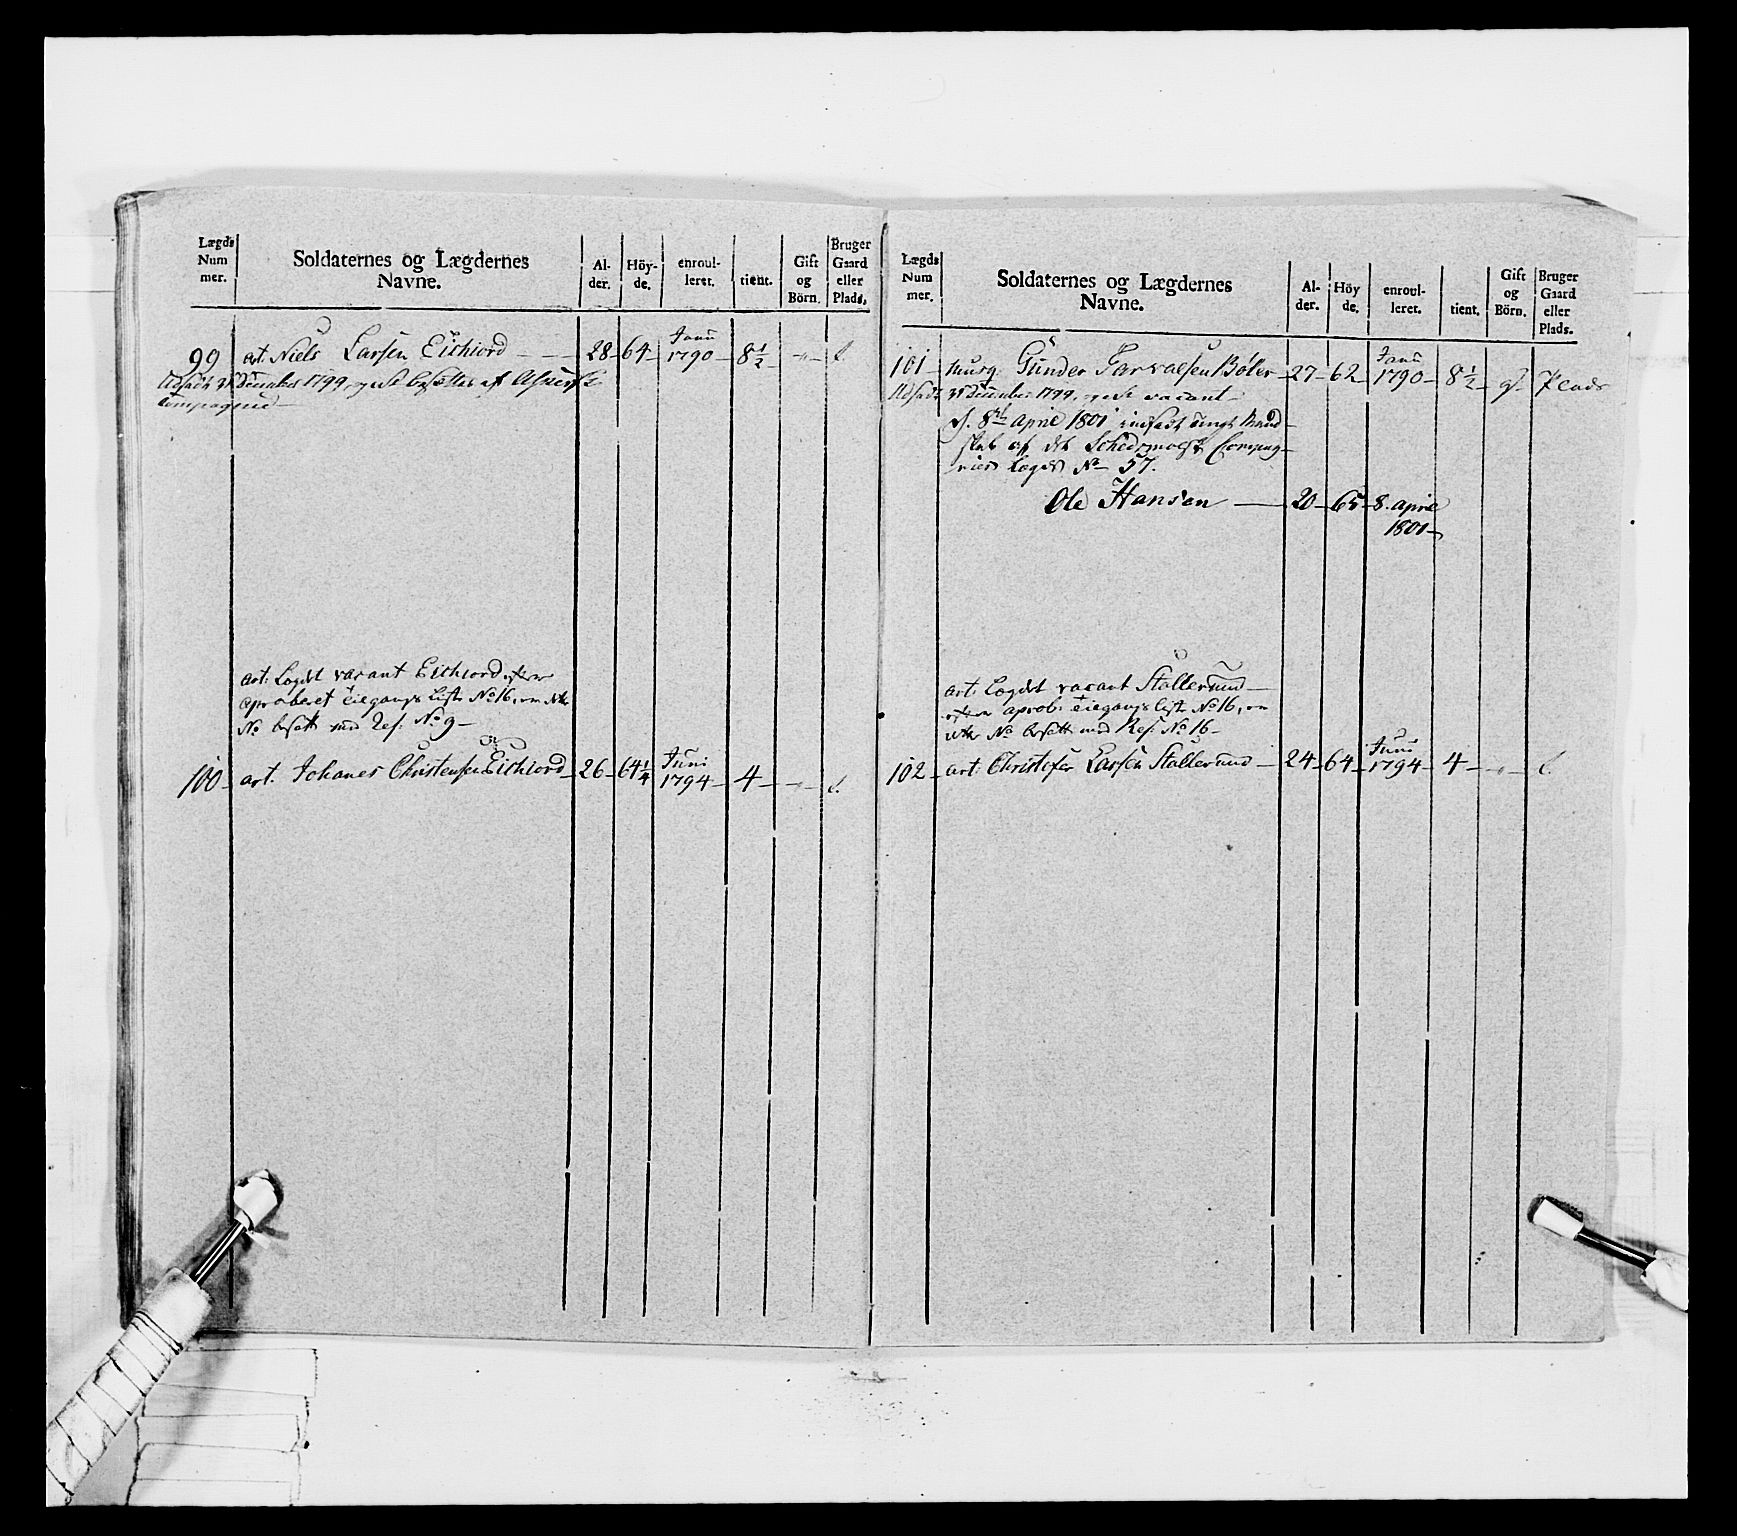 Lægds
Num
mer.
Soldaternes og Lægdernes
Navne.
Al-
der.
Höy-
de.
enroul-
leret.
tient.
Gift
og
Börn.
Bruger
Gaard
eller
Plads.
99 art. Niels Larsen Eichiord — 28 – 64 – Janu 1790 – 8 1/2 – „ –
Afsadt 31 December 1799, og besettes af
Compagnie
art: Lægdet vacant Eichiord efter
aproberet Tiegangs List No 16, om dette
No besatt med Res: No 9 –
100 – art. Johanes Christensen Eichiord – 26 – 64 1/4 – Juni 1794 – 4 – „ –
Lægds
Num
mer.
Soldaternes og Lægdernes
Navne.
Al-
der.
Höy
de.
enroul-
leret.
tient.
Gift
og
Börn.
Bruger
Gaard
eller
Plads.
101 – musq: Gunder Torvalsen Bøler – 27 – 62 – Janu 1790 – 8 1/2 – g. – Plads
Afsadt 31 December 1799, vacant
d. 8de April 1801 indsadt ungt Mand-
skab af det Schidsmoeske Compag-
nies Lægds No 57.
Ole Hansen — 20 – 65 – 8. april
1801 –
art: Lægdet vacant Stallerund —
efter aprob: Tiegangs List No 16, om
dette No besatt med Res: No 16 –
102 – art: Christofer Larsen Stallerund – 24 – 64 – Juni 1794 – 4 – „ –